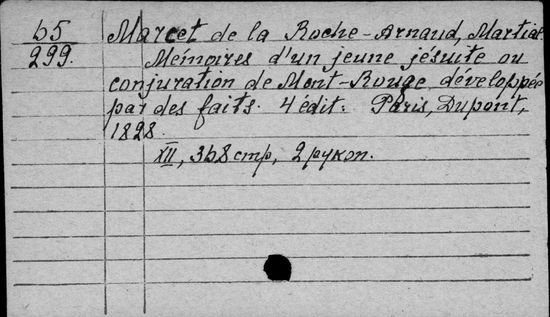 b5 Marcet de la Roche-Arnaud, Martial
299. Mémoires d'un jeune jésuite ou
conjuration de Mont-Rouge développée
par des faits. 4 édit. Paris, Dupont,
1828.
XII, 368 стр, 2 рукоп.